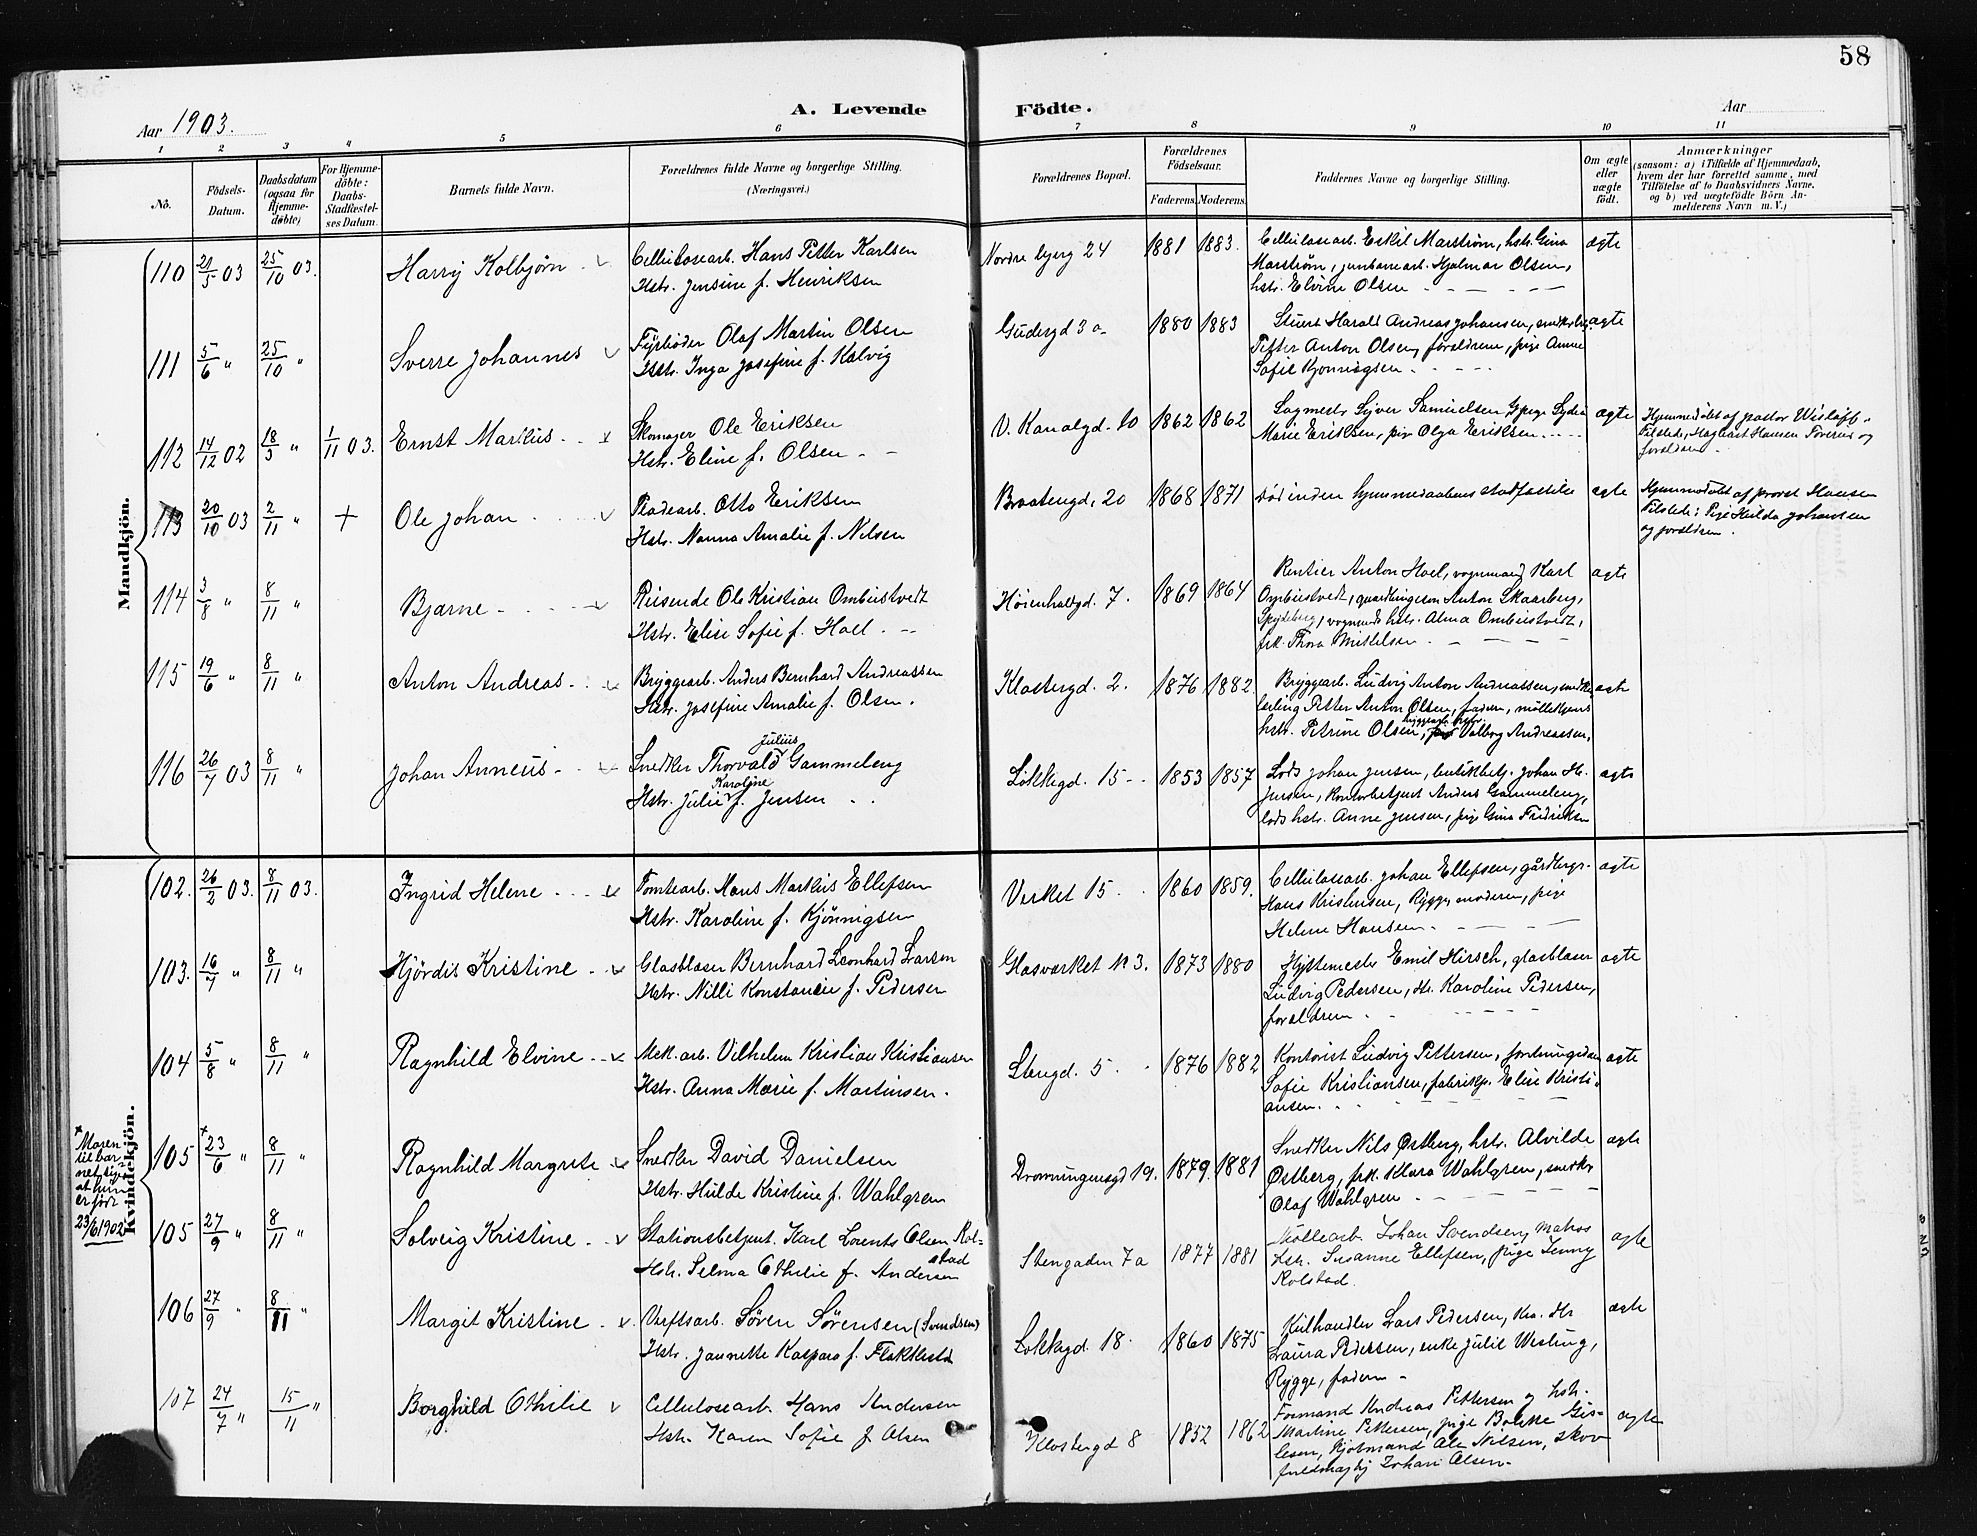 58
Aar 1903.
A. Levende Födte.
Aar
1 2 3 4 5 6 7 8 9 10 11
No.
Födsels-Datum.
Daabsdatum (ogsaa for Hjemme-döbte)
For Hjemme-döbte: Daabs-Stadfæstel-ses Datum.
Barnets fulde Navn.
Forældrenes fulde Navne og borgerlige Stilling. (Næringsvei.)
Forældrenes Bopæl.
Forældrenes Födselsaar.
Faderens. Moderens.
Faddernes Navne og borgerlige Stilling.
Om ægte eller uægte født.
Anmærkninger
(saasom: a) i Tilfælde af Hjemmedaab,
hvem der har forrettet samme, med
Tilföielse af to Daabsvidners Navne,
og b) ved uægtefödte Börn An-
melderens Navn m. V.)
Mandkjön.
110 21/5 03 25/10 03. Harry Kolbjørn
Cellulosearb. Hans Petter Karlsen
Hstr. Jensine f. Henriksen
Nordre bjerg 24 1881 1883.
Cellulosearb. Eskil Marstrøm, hstr. Gina
Marstrøm, jernbanearb. Hjalmar Olsen,
hstr. Elvine Olsen
ægte
111 5/6 " 25/10 " Sverre Johannes
Fyrbøder Olaf Martin Olsen
Hstr. Inga Josefine f. Kalvig
Gudesgd 3a 1880 1883
Stuert Harald Andreas Johansen,
Petter Anton Olsen, forældrene, pige Anna
Sofie
ægte
112 14/12 02 18/3 " 1/11 03. Ernst Markus
Skomager Ole Eriksen
Hstr. Eline f. Olsen
V. Kanalgd. 10 1862 1862
Sagmestr. Syver Samuelsen, pige Lydia
Marie Eriksen, pige Olga Eriksen
ægte
Hjemmedøbt af pastor Wisløff.
Tilstede, Hagbart Hansen og
forældrene
113 20/10 03 2/11 " + Ole Johan
Pladearb. Otto Eriksen
Hstr. Nanna Amalie f. Nilsen
Braatengd. 20 1868 1871
død inden hjemmedaabens stadfæstelse
ægte
Hjemmedøbt af provst Hansen
Tilstede: Pige Hulda Johansen
og forældrene.
114 3/8 " 8/11 " Bjarne
Reisende Ole Kristian Ombustvedt
Hstr. Elise Sofie f. Hoel.
Høienhaldgd. 7. 1869 1864
Rentier Anton Hoel, vognmand Karl
Ombustvedt, gaardbrugersøn Anton Skaarberg,
Spydeberg, vognmands hstr. Alma Ombustvedt,
frk. Thora Mikkelsen
ægte
115 19/6 " 8/11 " Anton Andreas
Bryggearb. Anders Bernhard Andreassen
Hstr. Josefine Amalie f. Olsen.
Klostergd. 2. 1876 1882.
Bryggearb. Ludvig Anton Andreassen, snedker
lærling Petter Anton Olsen, faderen,
hstr. Petrine Olsen, bryggearb. hstr. Valborg Andreassen,
ægte
116 26/7 03 8/11 " Johan Anneus
Julius
Snedker Thorvald Gammeleng
Karoline
Hstr. Julie f. Jensen
Løkkegd. 15 1853 1857
Lods Johan Jensen, butikbetj. Johan Hr.
Jensen, kontorbetjent Anders Gammeleng,
lods hstr. Anne Jensen, pige Gina Fredriksen
ægte
Kvindekjön.
102. 26/2 03. 8/11 03. Ingrid Helene
Tomtearb. Hans Markus Ellefsen
Hstr. Karoline f. Kjönnigsen
Verket 15 1860 1859.
Cellulosearb. Johan Ellefsen, gårdbrgr.
Hans Kristensen, Rygge, moderen, pige
Helene Hansen
ægte
103. 16/7 " 8/11 " Hjördis Kristine
Glasblaser Bernhard Leonhard Larsen
Hstr. Nilli Konstance f. Pedersen
Glasværket N 3. 1873 1880
Hyttemester Emil Hirsch, glasblaser
Ludvig Pedersen, Hr. Karoline Pedersen,
forældrene
ægte
104 5/8 " 8/11 " Ragnhild Elvine
Mek. arb. Vilhelm Kristian Kristiansen
Hstr. Anna Marie f. Martinsen.
Stengd. 5 1876 1882
Kontorist Ludvig Pettersen,
Sofie Kristiansen, fabrikp. Elise Kristi-
ansen.
ægte
x Moren
til bar-
net
at hun
er født
23/6 1902
105 x 23/6 " 8/11 " Ragnhild Margrete
Snedker David Danielsen
Hstr. Hulda Kristine f. Wahlgren
Dronningensgd 19. 1879. 1881
Snedker Nils Østberg, hstr. Alvilde
Østberg, frk. Klara Wahlgren, snedker
Olaf Wahlgren
ægte
105 27/9 " 8/11 " Solveig Kristine
Stationsbetjent. Karl Lorents Olsen Rol-
stad
Hstr. Selma Othilie f. Andersen
Stengaden 7a 1877 1881
Möllearb. Johan Svendsen, Matros
hstr. Susanne Ellefsen, pige Jenny
Rolstad.
ægte
106 27/9 " 8/11 " Margit Kristine
Verftsarb. Søren Sörensen (Svendsen)
Hstr. Jannette Kaspara f. Flakkestad
Løkkegd. 18. 1860 1875
Kulhandler Lars Pedersen, Hr.
Laura Pedersen, enke Julie Wesling,
Rygge, faderen
ægte
107 24/7 " 15/11 " Borghild Othilie
Cellulosearb. Hans Andersen
Hstr. Karen Sofie f. Olsen
Klostergd 8 1852 1862
Formand Andreas Pettersen og hstr.
Martine Pettersen, pige
Ole Nilsen, skov
Johan Olsen.
ægte